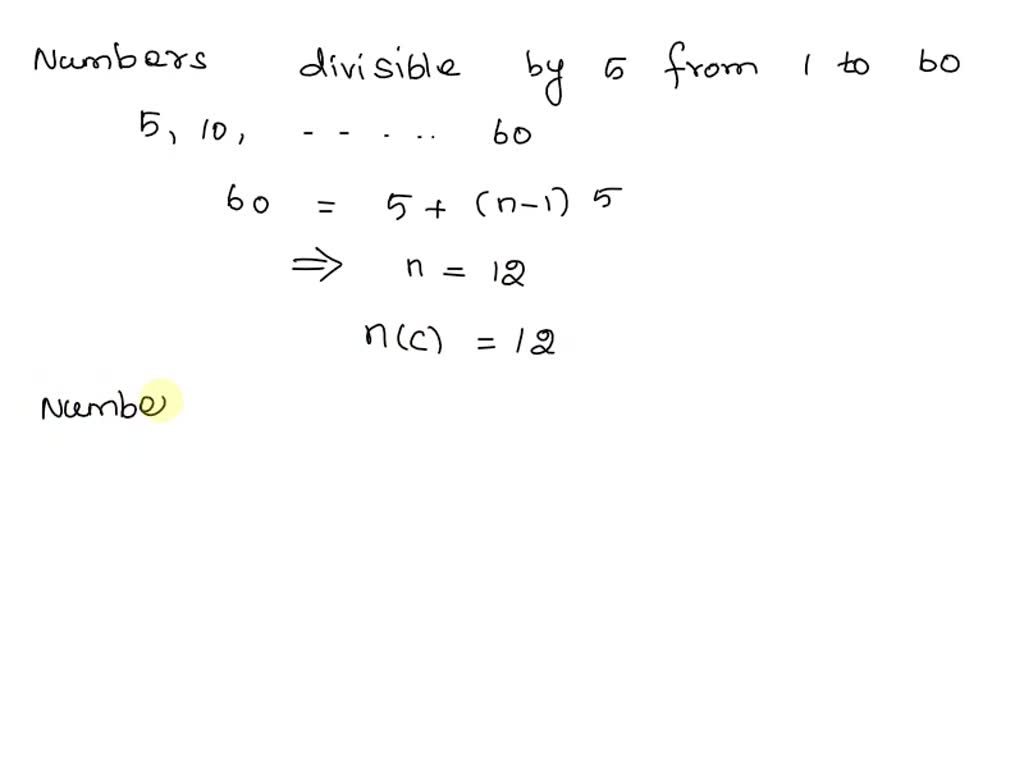 Numbers divisible by 5 from 1 to 60
5, 10, - - . .. 60
60 = 5 + (n-1) 5
⇒ n = 12
n(c) = 12
Numbe